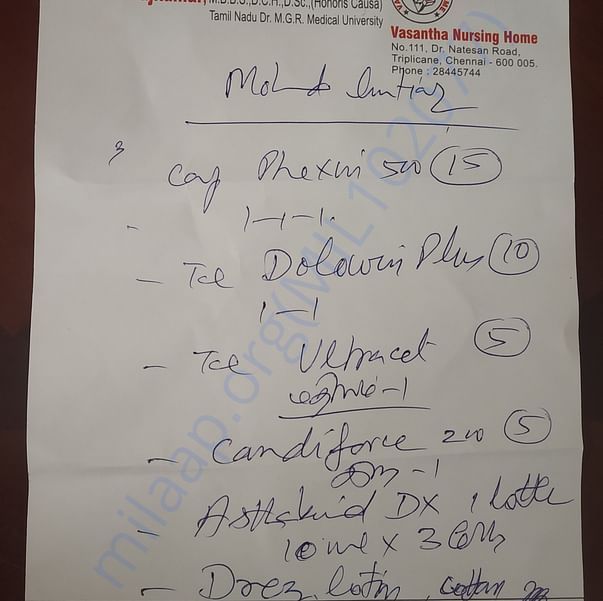 M.B.B.S., D.C.H., D.Sc., (Honoris Causa)
Tamil Nadu Dr. M.G.R. Medical University
Vasantha Nursing Home
No.111, Dr. Natesan Road,
Triplicane, Chennai - 600 005.
Phone : 28445744
Mohd Imtiaz
Cap Phexin 500 (15)
1-1-1
- Tal Dolowin Plus (10)
1-1
- Tal Ultracet (5)
-1
- Candiforce 200 (5)
-1
- Asthakind DX 1 bottle
10 ml x 3
- Drez lotion, cotton
milaap.org(MIL10207